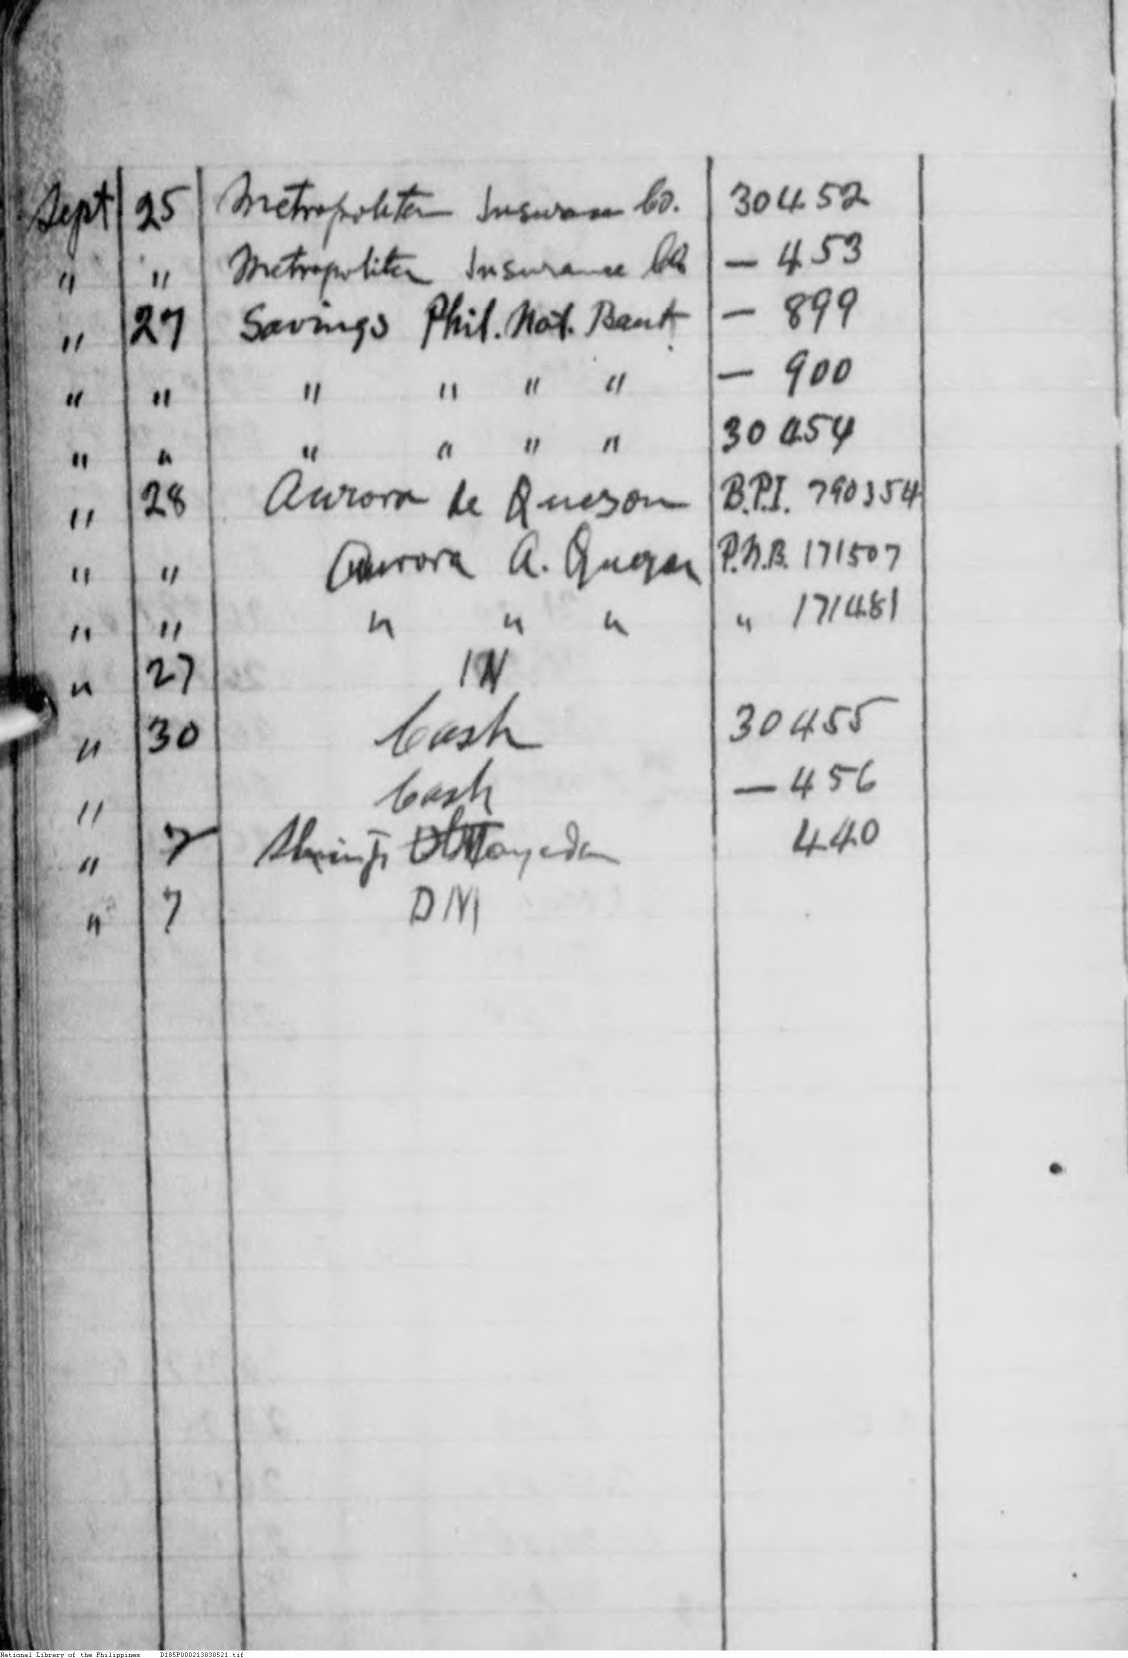 Sept 25 Metropolitan Insurance Co. 30452
" " Metropolitan Insurance Co — 453
" 27 Savings Phil. Nat. Bank — 899
" " " " " " — 900
" " " " " " 30454
" 28 Aurora de Quezon B.P.I. 790354
" " Aurora A. Quezon P.N.B. 171507
" " " " " " 171481
" 27 IN
" 30 Cash 30455
" Cash — 456
" 7 440
" 7 DM
National Library of the Philippines D185P000213830521.tif